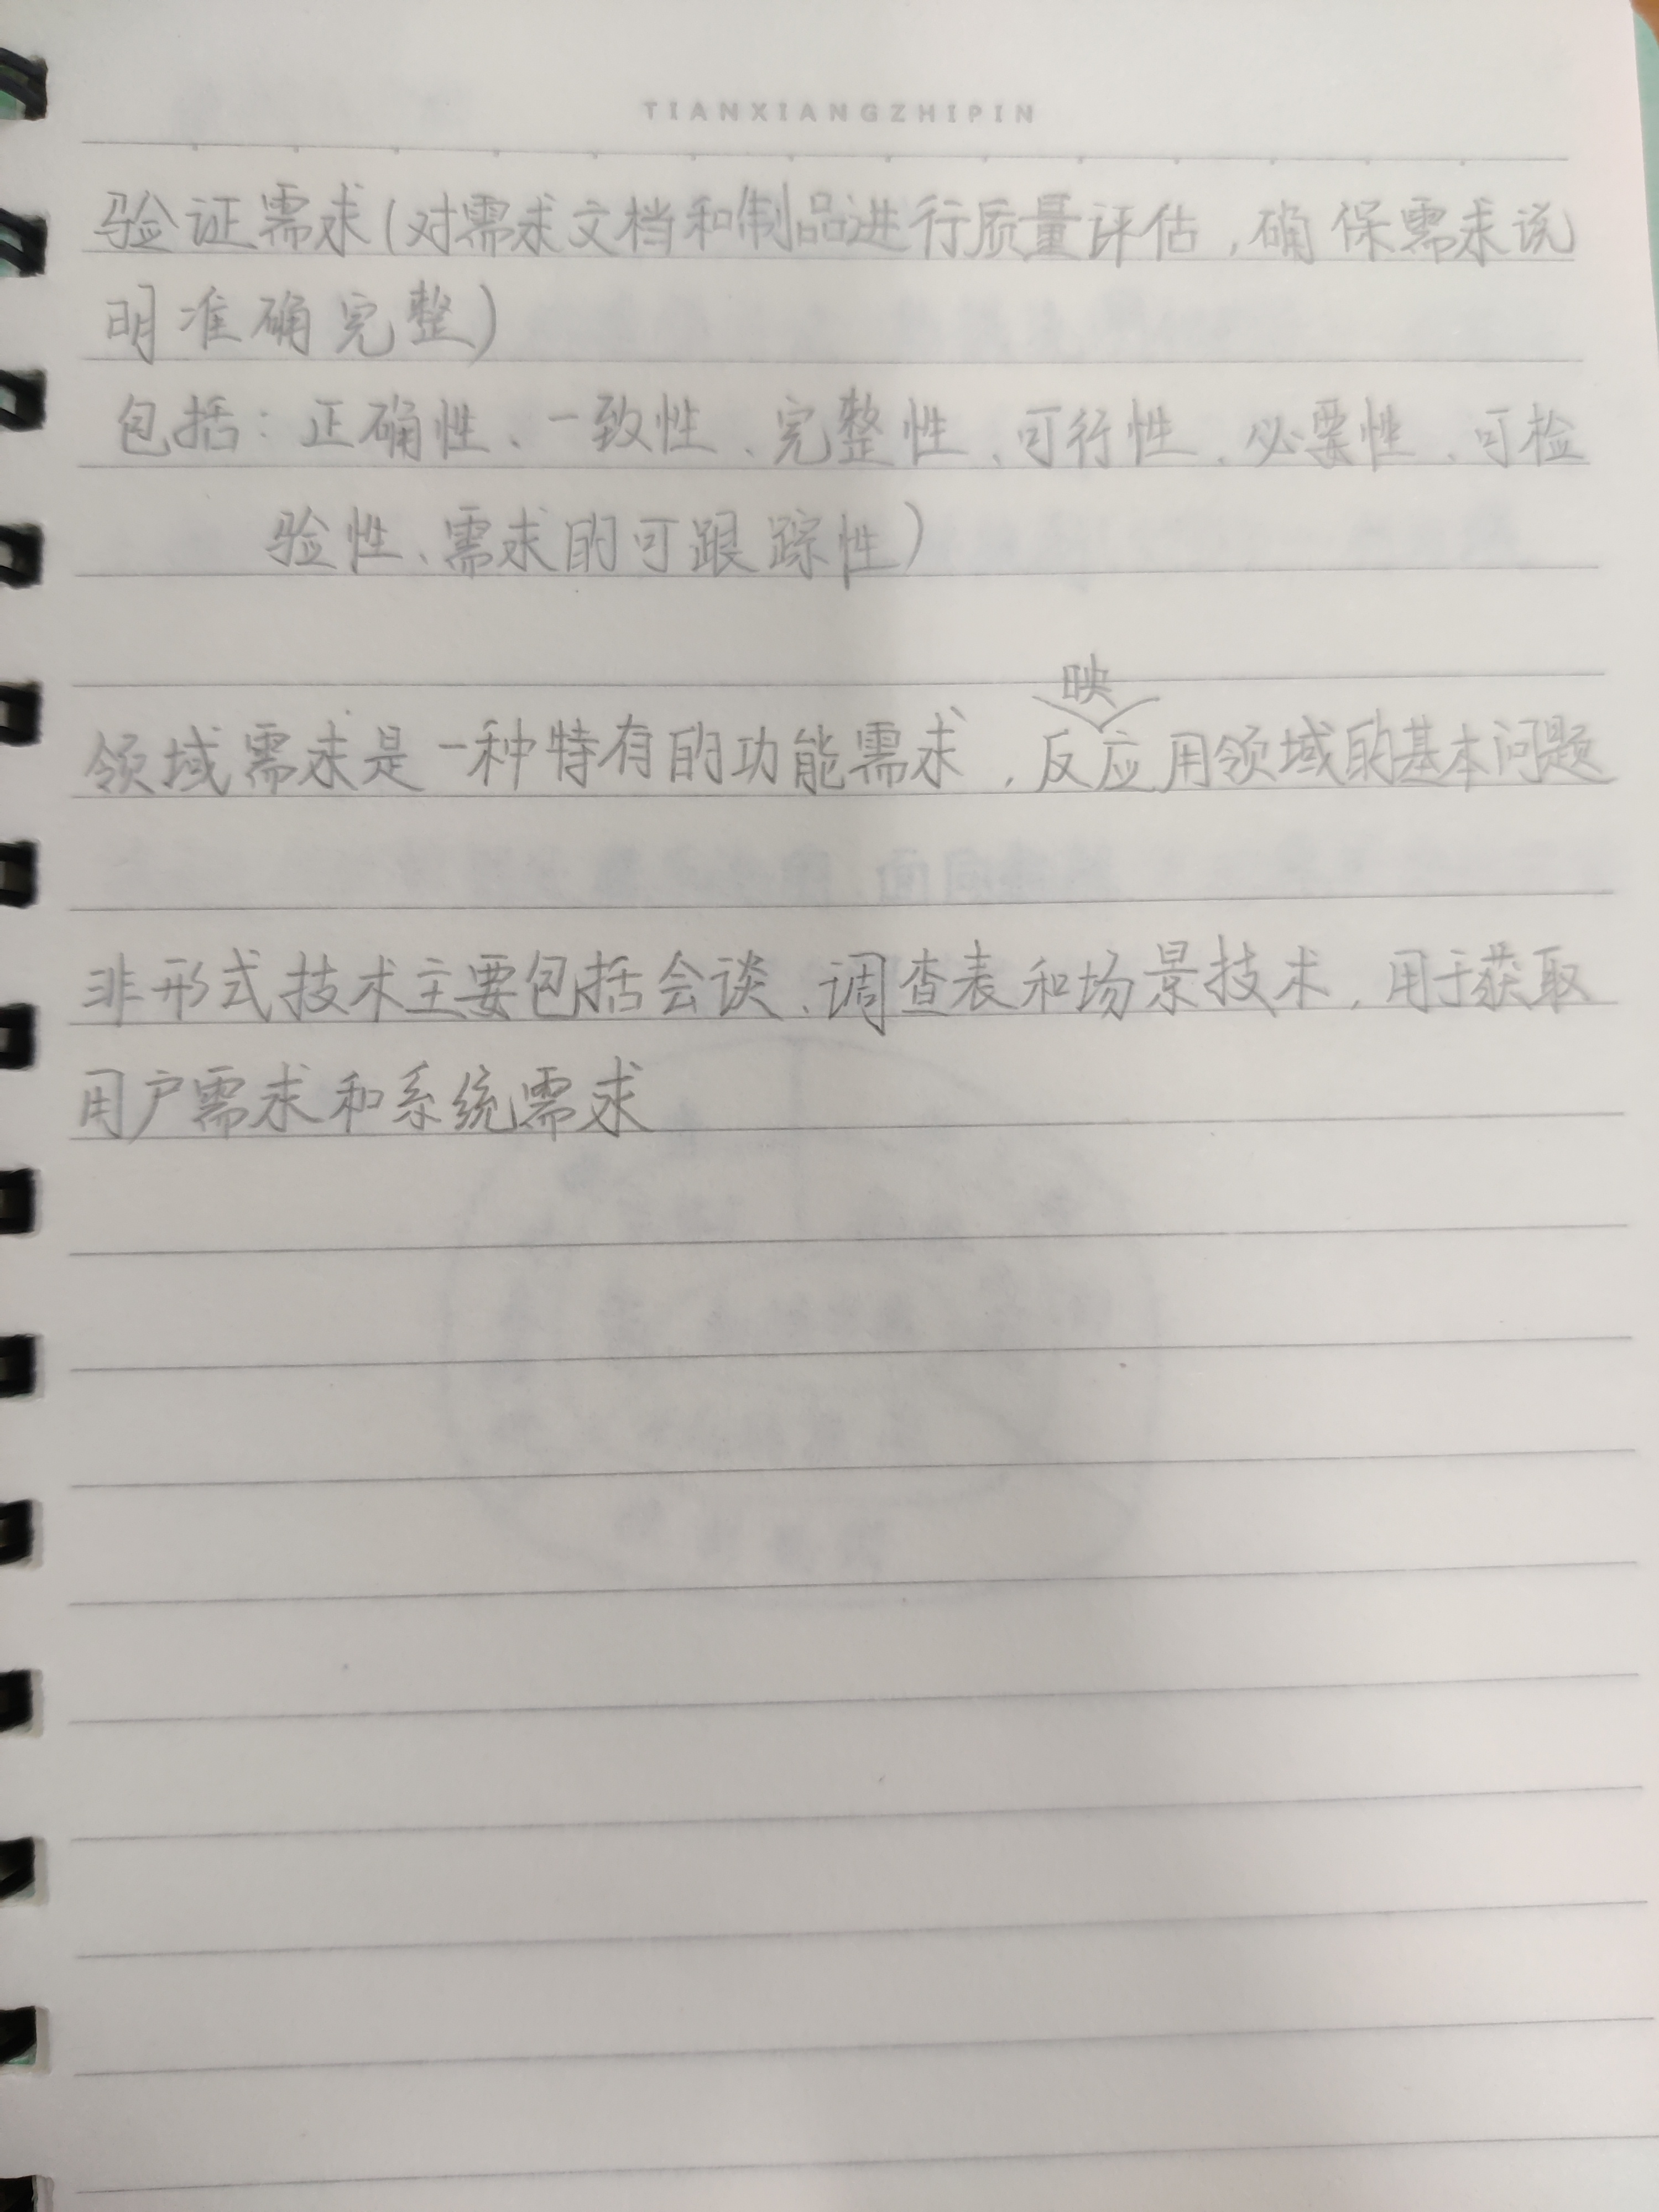 TIANXIANGZHIPIN
验证需求(对需求文档和制品进行质量评估,确保需求说
明准确完整)
包括:正确性、一致性、完整性、可行性、必要性、可检
验性、需求的可跟踪性)
领域需求是一种特有的功能需求,反映应用领域的基本问题
非形式技术主要包括会谈、调查表和场景技术,用于获取
用户需求和系统需求